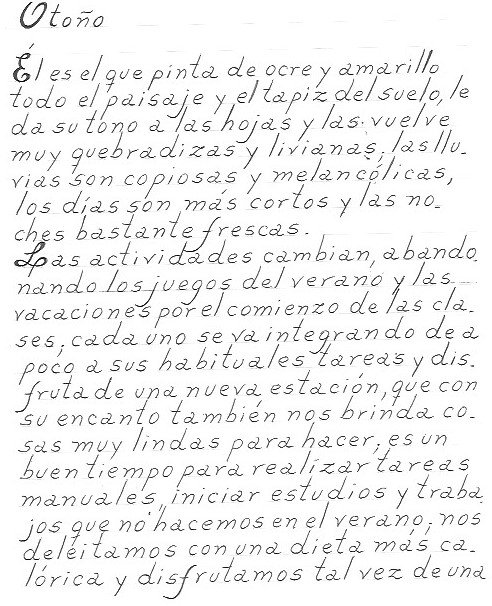 Otoño
Él es el que pinta de ocre y amarillo
todo el paisaje y el tapiz del suelo, le
da su tono a las hojas y las vuelve
muy quebradizas y livianas, las llu-
vias son copiosas y melancólicas,
los días son más cortos y las no-
ches bastante frescas.
Las actividades cambian, abando-
nando los juegos del verano y las
vacaciones por el comienzo de las cla-
ses; cada uno se va integrando de a
poco a sus habituales tareas y dis-
fruta de una nueva estación, que con
su encanto también nos brinda co-
sas muy lindas para hacer; es un
buen tiempo para realizar tareas
manuales, iniciar estudios y traba-
jos que no hacemos en el verano; nos
deleitamos con una dieta más ca-
lórica y disfrutamos tal vez de una